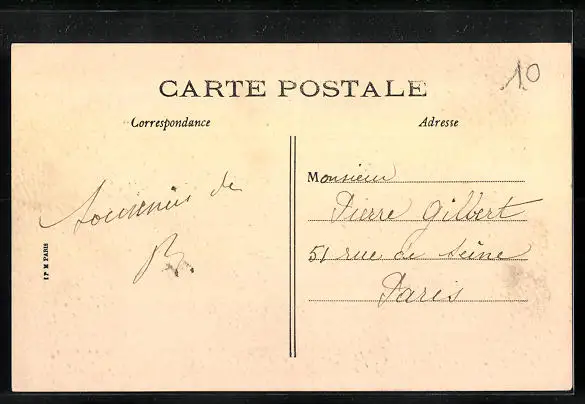 10
CARTE POSTALE
Correspondance
Adresse
Souvenir de
B.
Monsieur
Pierre Gilbert
51 rue de Seine
Paris
I P M PARIS